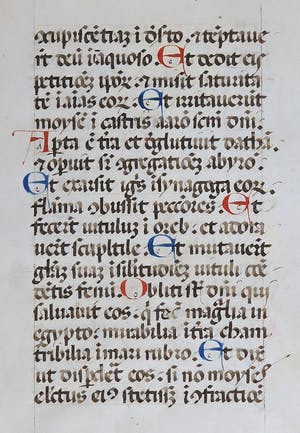 cupiscētiaz ī dſto. ⁊ tēptaue
rūt deū ī ĩaquoso. Et dedit eis
petitiōez ipoꝝ. ⁊ misit saturita
tē ī aīas eoꝝ. Et irritauerūt
moysē ī castris aarō scm̄ dnī.
Apta ē tr̄a et ɔ̄glutiuit dathā
⁊ opuit sꝑ ɔgregatiōez abyrō.
Et exarsit igīs ī synagoga eoꝝ
flāma ɔbussit peccōres. Et
fecerūt uitulūz ī oreb. et adora
uerūt scupltile. Et mutauerūt
gl̄iaz suaz ī sīlitudiēz uituli cōe
dētis fenū. Obliti sūt dm̄ qui
saluauit eos. q̄ fec̄ mag̃lia in
egypto. mirabilia ī tr̄a cham
tribilia ī mari rubro. Et dix̄
ut disp̄deret eos. si nō moyses
electus eiꝰ stetiss̄ ī ɔfractiōe